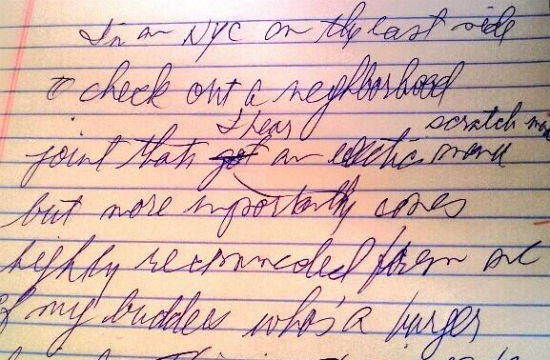 In an NYC on the East side
to check out a neighborhood
I hear scratch
joint thats got an eclectic menu
but more importantly comes
highly recommended from one
of my buddies who's a burger